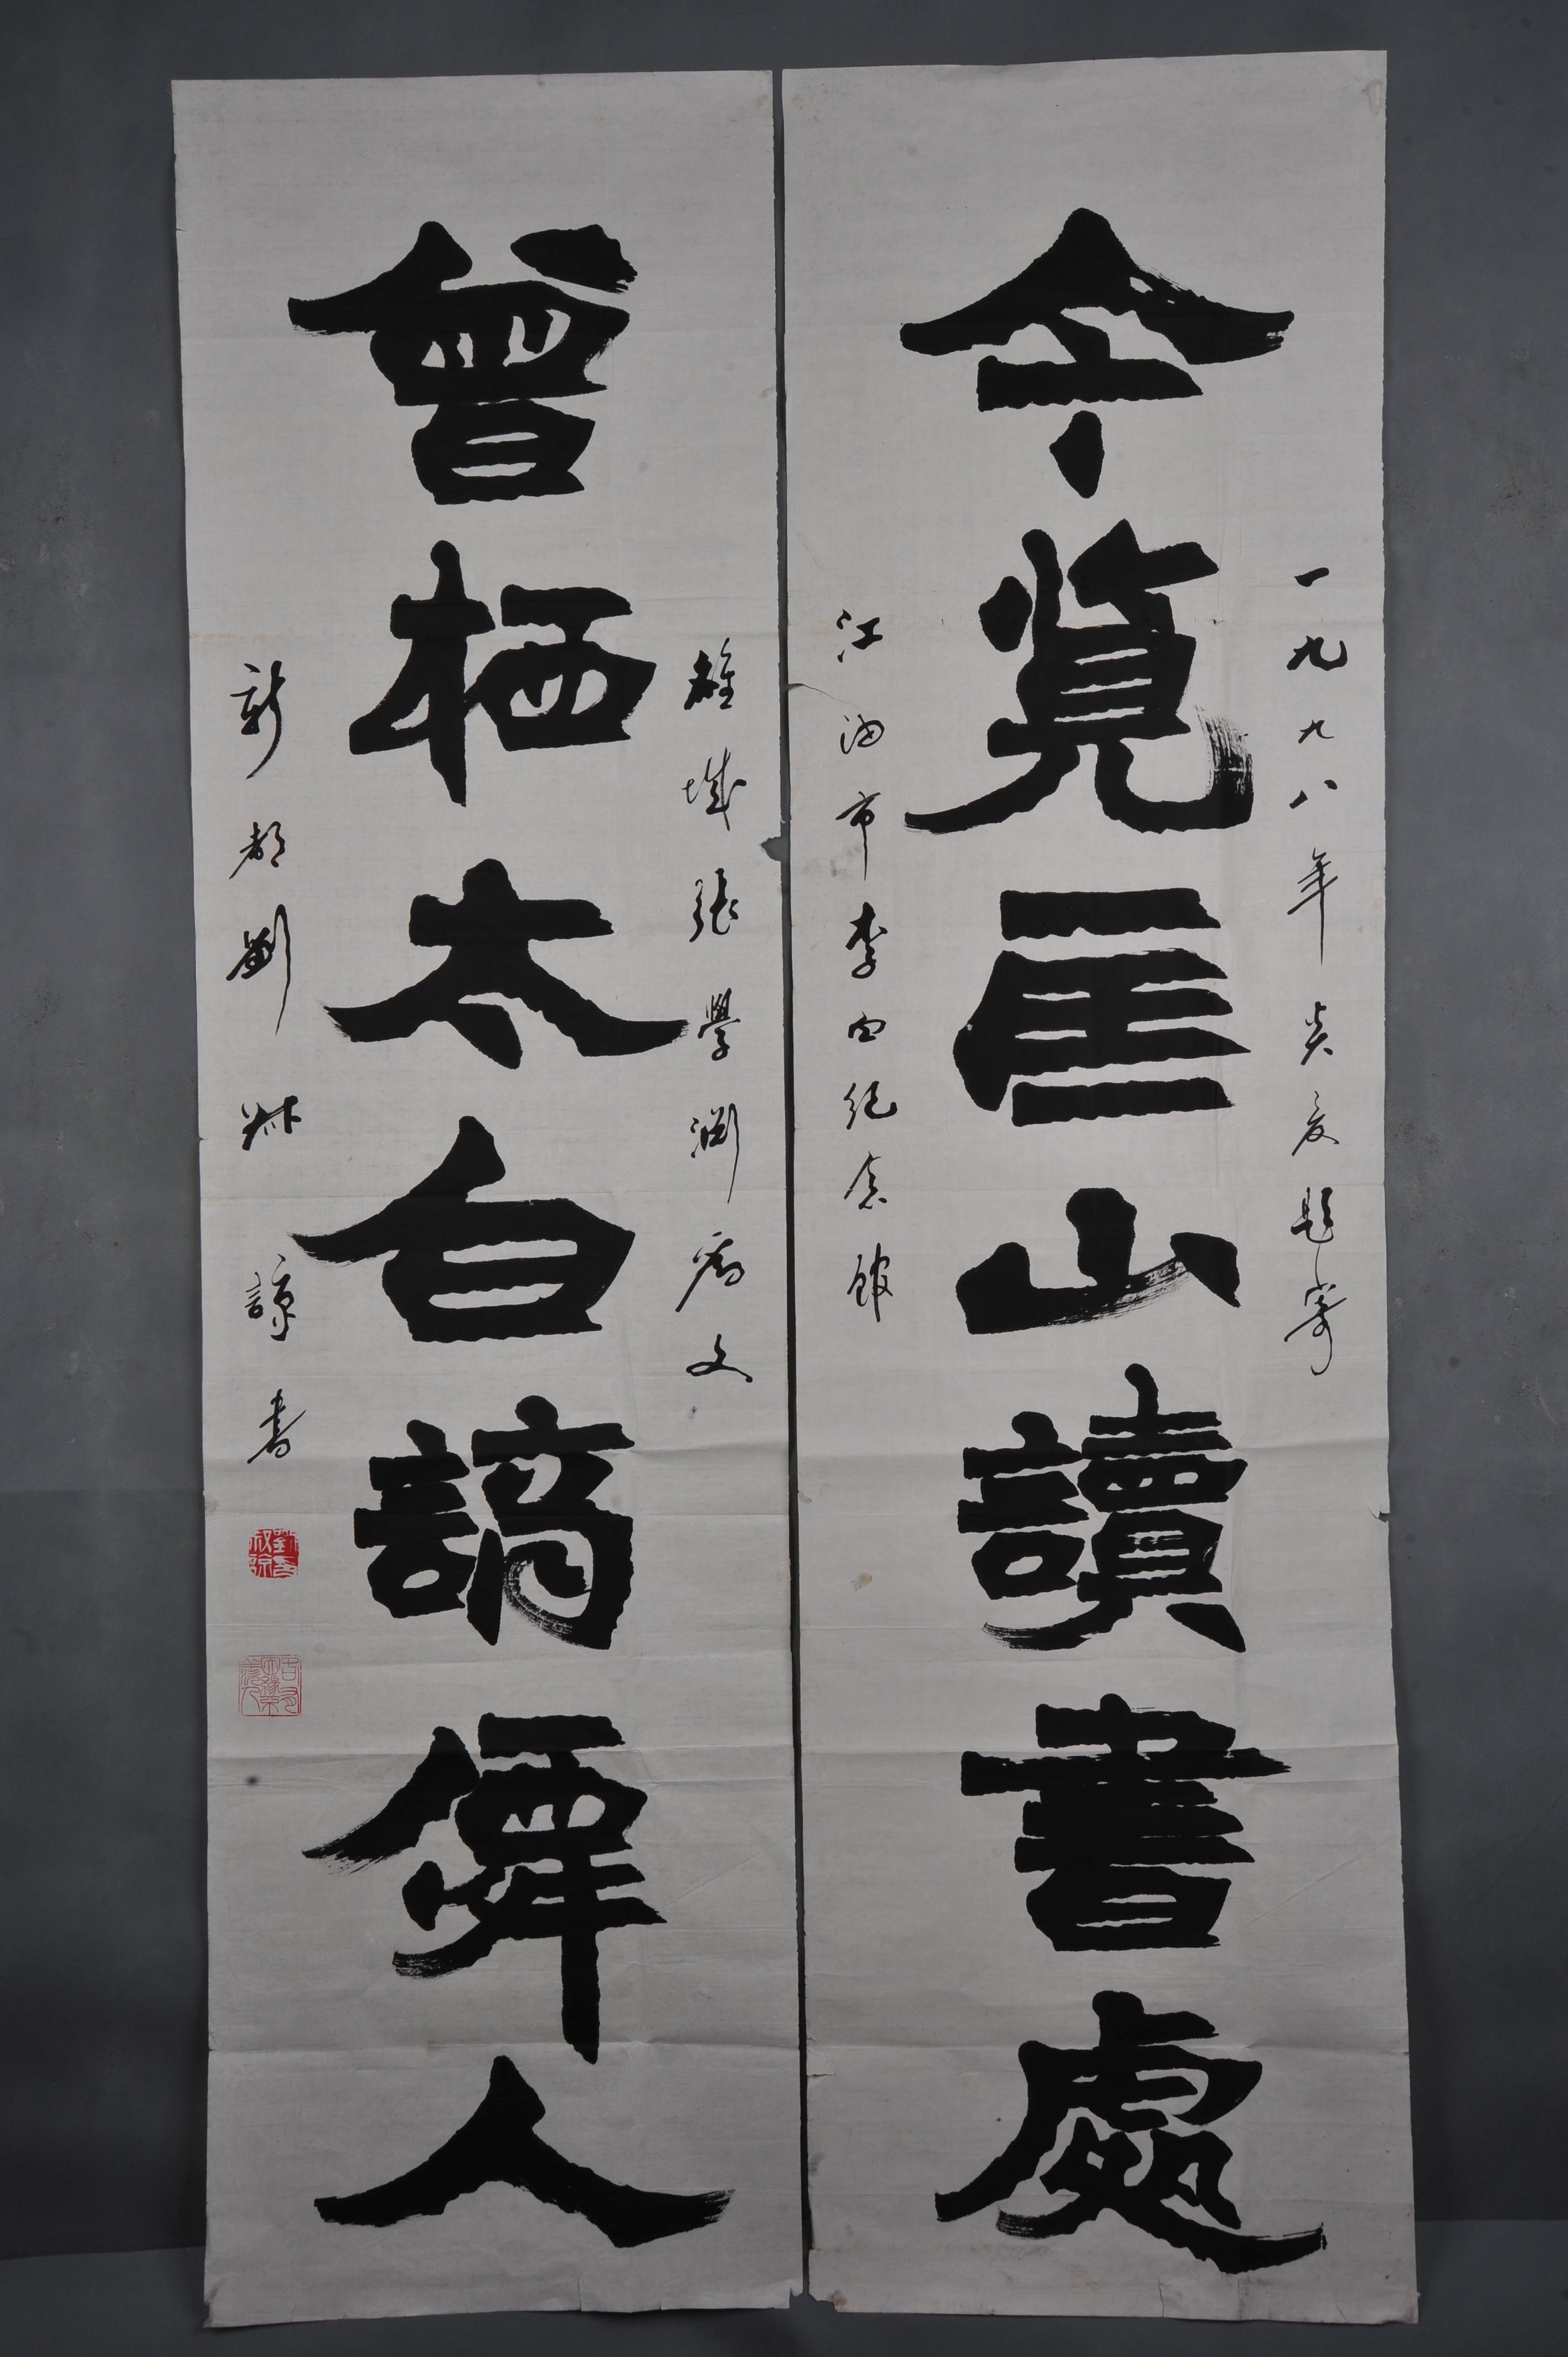 一九九八年炎夏題寄
今覽匡山讀書處
江油市李白紀念館
雒城張學淵為文
曾栖太白謫僊人
新都劉叔諒書